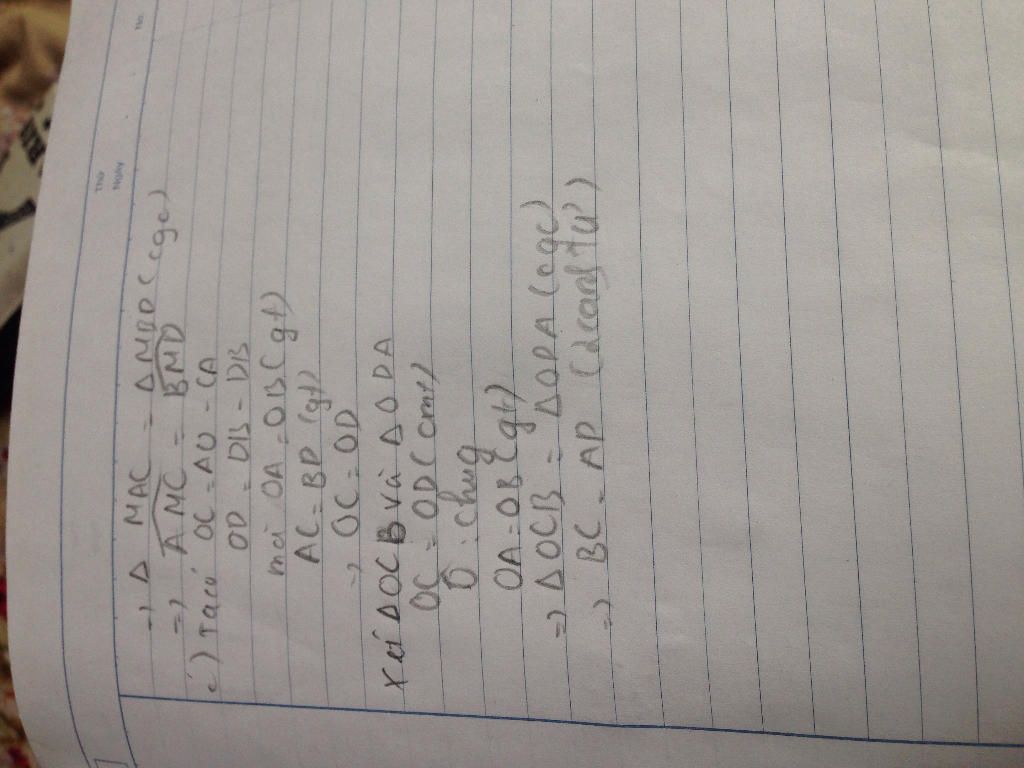 No.
Thứ
Ngày
=> Δ MAC = Δ MBD (cgc)
=> AMC = BMD
c) Ta có OC = AO - CA
OD = DB - DB
mà OA = OB (gt)
AC = BD (gt)
=> OC = OD
Xét ΔOCB và Δ ODA
OC = OD (cmt)
Ô : chug
OA = OB (gt)
=> ΔOCB = ΔODA (cgc)
=> BC = AD (2 cạng tư)